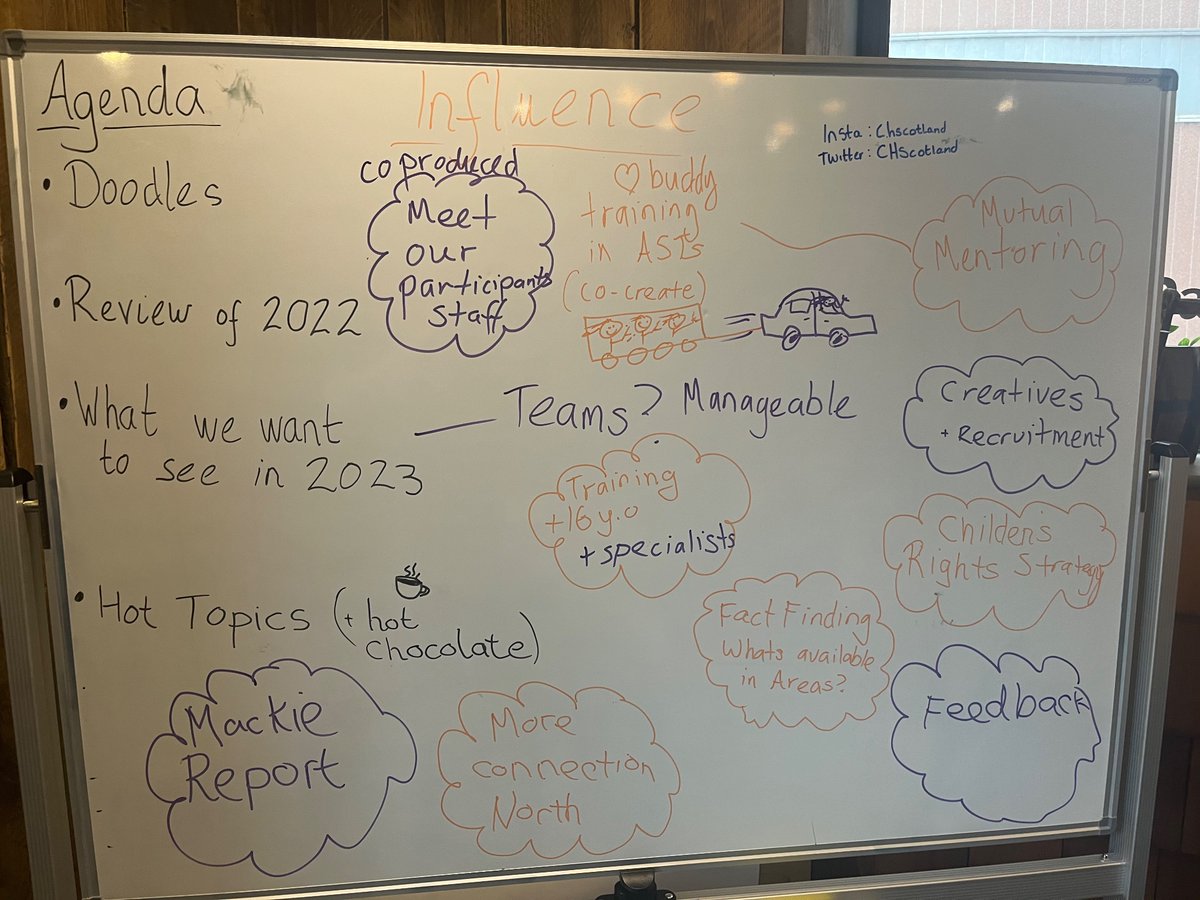 Agenda
• Doodles
• Review of 2022
• What we want
to see in 2023
• Hot Topics (+ hot
chocolate)
Influence
Insta: Chscotland
Twitter: CHScotland
co produced
Meet
our
participants
staff
♡ buddy
training
in ASTs
(co-create)
Mutual
Mentoring
— Teams? Manageable
Creatives
+ Recruitment
Training
+16 y.o
+ specialists
Childen's
Rights Strategy
Fact Finding
Whats available
in Areas?
Feedback
Mackie
Report
More
connection
North